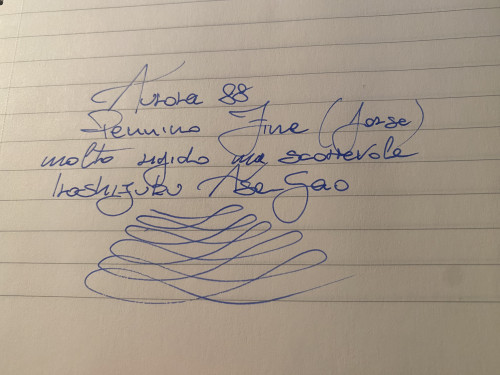 Aurora 88
Pennino Fine (forse)
molto rigido ma scorrevole
Iroshizuku Asa-Gao